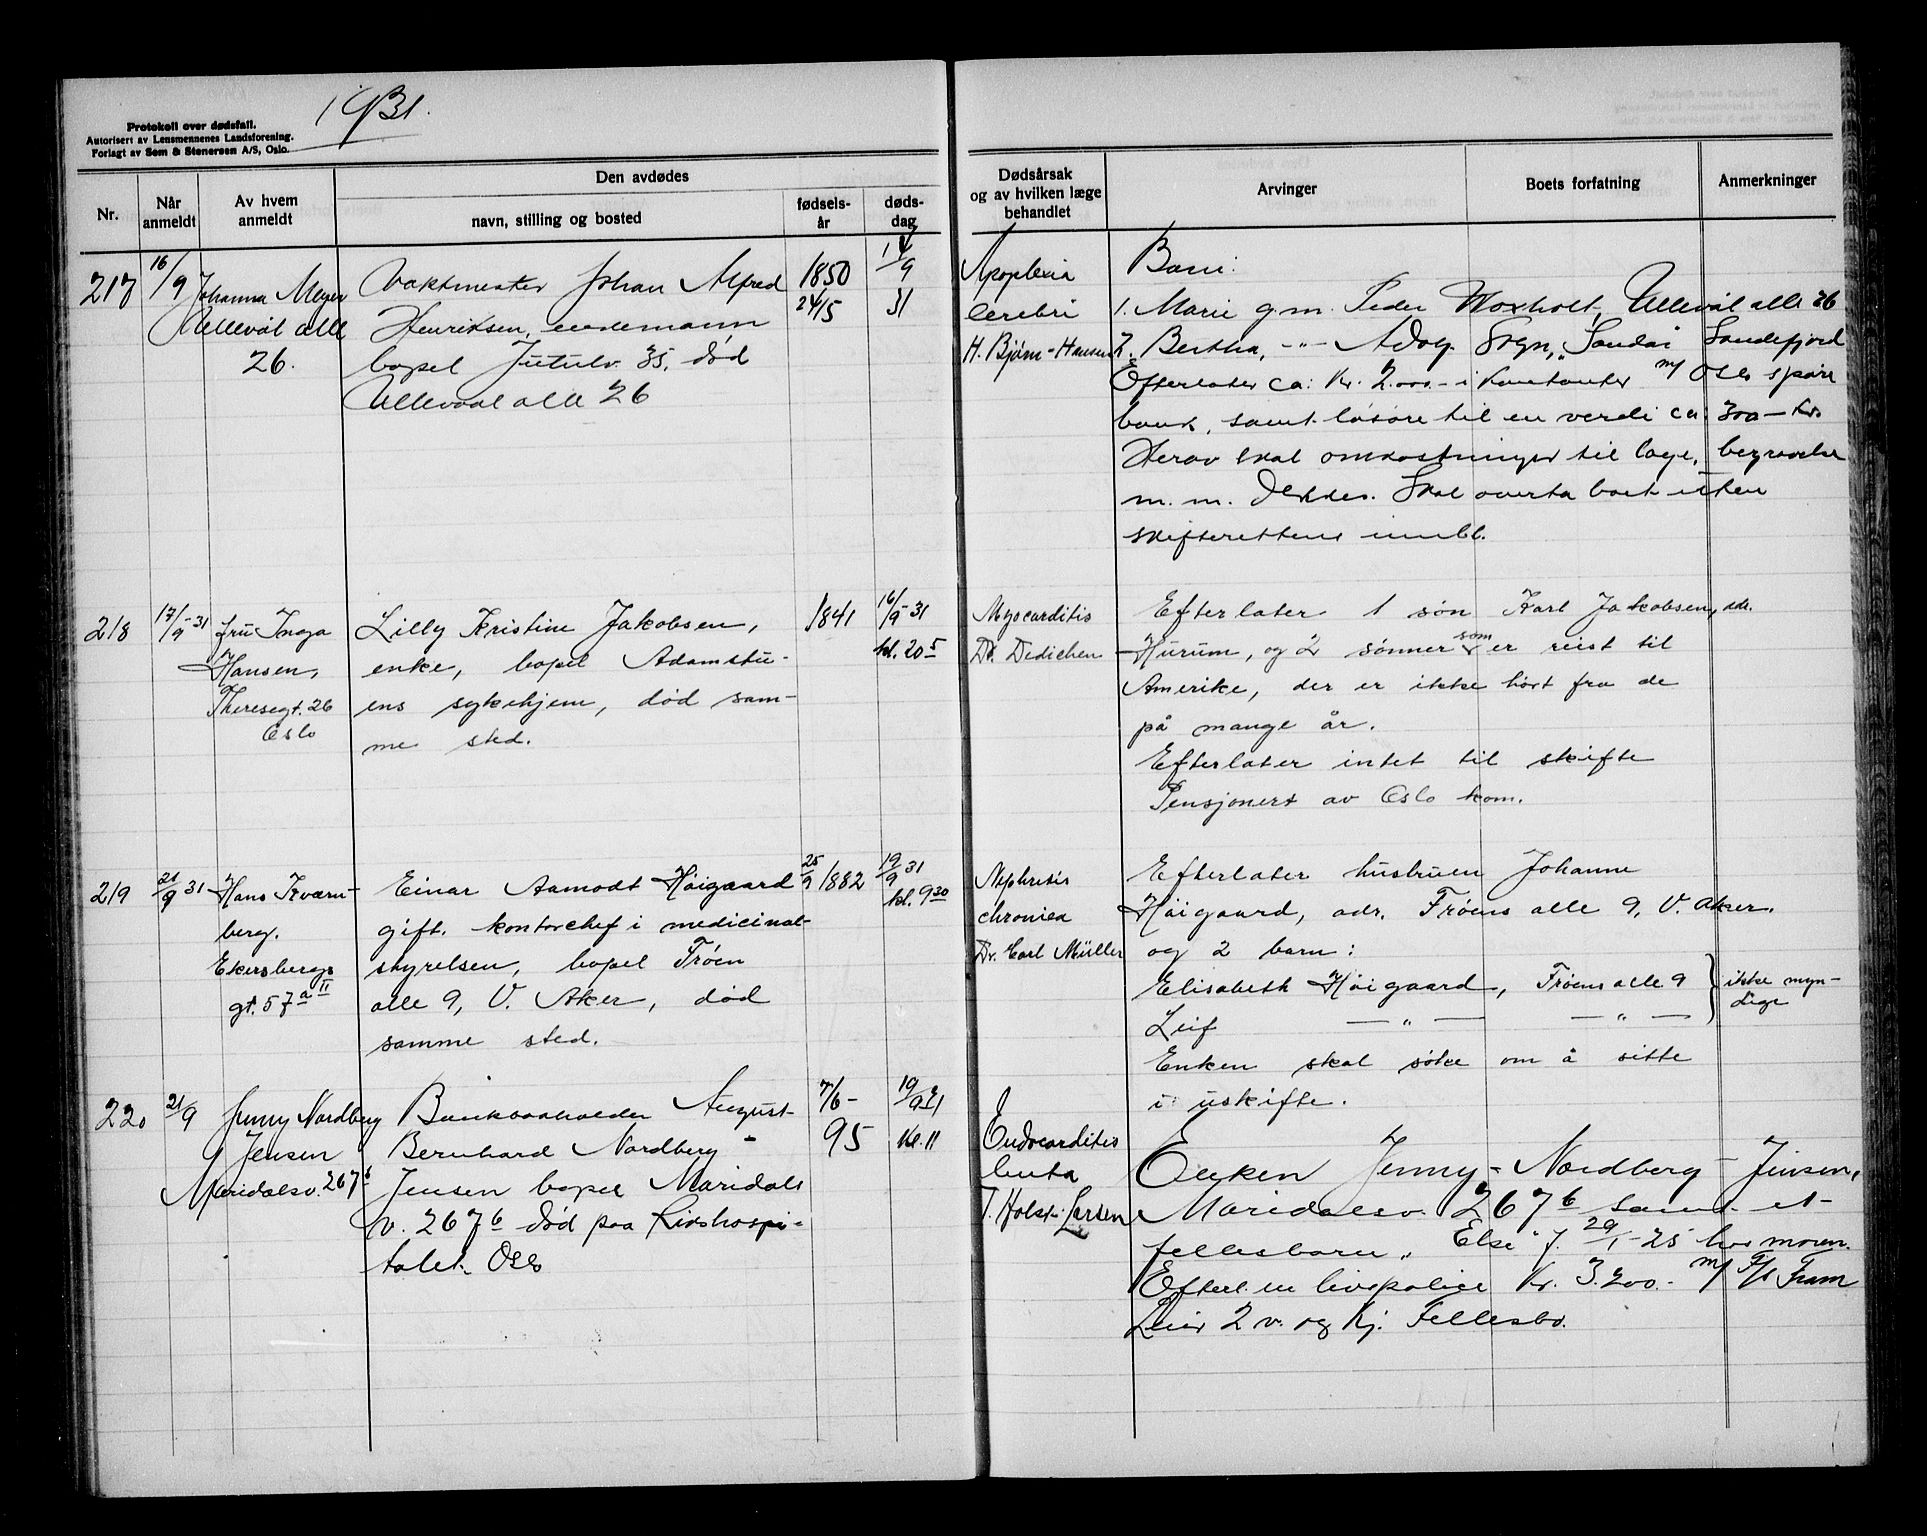 1931.
Protokoll over dødsfall.
Autorisert av Lensmennenes Landsforening.
Forlagt av Sem & Stenersen A/S, Oslo.
Nr.
Når anmeldt
Av hvem anmeldt
Den avdødes
navn, stilling og bosted
fødsels-år
døds-dag
Dødsårsak og av hvilken læge behandlet
Arvinger
Boets forfatning
Anmerkninger
217
16/9
Johanna Meyer
Ullevål alle
26.
Vaktmester Johan Alfred
Henriksen, enkemann
bopel Jutulv. 35, død
Ullevaal alle 26
1850
24/5
1/9
31
Apoplexia
cerebri
H. Bjørn-Hansen
Barn:
1. Marie g.m. Peder Woxholt, Ullevål alle 26
2. Bertha, -"- Adog. Sogn, Sandar Sandefjord
Efterlater ca: Kr. 2.000.- i kontanter m/ Oslo spare
bank, samt løsøre til en verdi ca. 300 - kr.
Herav skal omkostninger til læge, begravelse
m. m. dekkes. Skal overta boet uten
skifterettens innbl.
218
17/9-31
fru Inga
Hansen,
Theresegt. 26
Oslo
Lilly Kristine Jakobsen,
enke, bopel Adamstu-
ens sykehjem, død sam-
me sted.
1841
16/9-31
kl. 20 5
Myocarditis
Dr. Dedichen
Efterlater 1 søn Karl Jakobsen, adr.
Hurum, og 2 sønner som er reist til
Amerike, der er ikke hørt fra de
på mange år.
Efterlater intet til skifte
Pensjonert av Oslo kom.
219
21/9 31
Hans Kværn-
berg.
Ekersbergs
gt. 57 a II
Einar Aamodt Høigaard
gift. kontorchef i medicinal-
styrelsen, bopel Frøen
alle 9, V. Aker, død
samme sted.
25/9 1882
19/9 31
kl. 9 30
Nephresis
chronica
Dr. Carl Müller
Efterlater hustruen Johanne
Høigaard, adr. Frøens alle 9, V. Aker.
og 2 barn:
Elisabeth Høigaard, Frøens alle 9 } ikke myn-
dige
Leif -"- -"-
Enken skal søke om å sitte
i uskifte.
220
21/9
Jenny Nordberg
Jensen
Maridalsv. 267 b
Bankbokholder August
Bernhard Nordberg -
Jensen bopel Maridals
v. 267 b død paa Rikshospi-
talet. Oslo
7/6-
95
19/9 31
Kl. 11
Endocarditis
lenta
T. Holst-Larsen
Enken Jenny - Nordberg - Jensen,
Maridalsv. 267 b samt et
fellesbarn „ Else f. 29/1-25 hos moren.
Efterl. en livspolice Kr. 3.200.- m/ F/s Fram
Leier 2 v. og kj. Fellesbo.